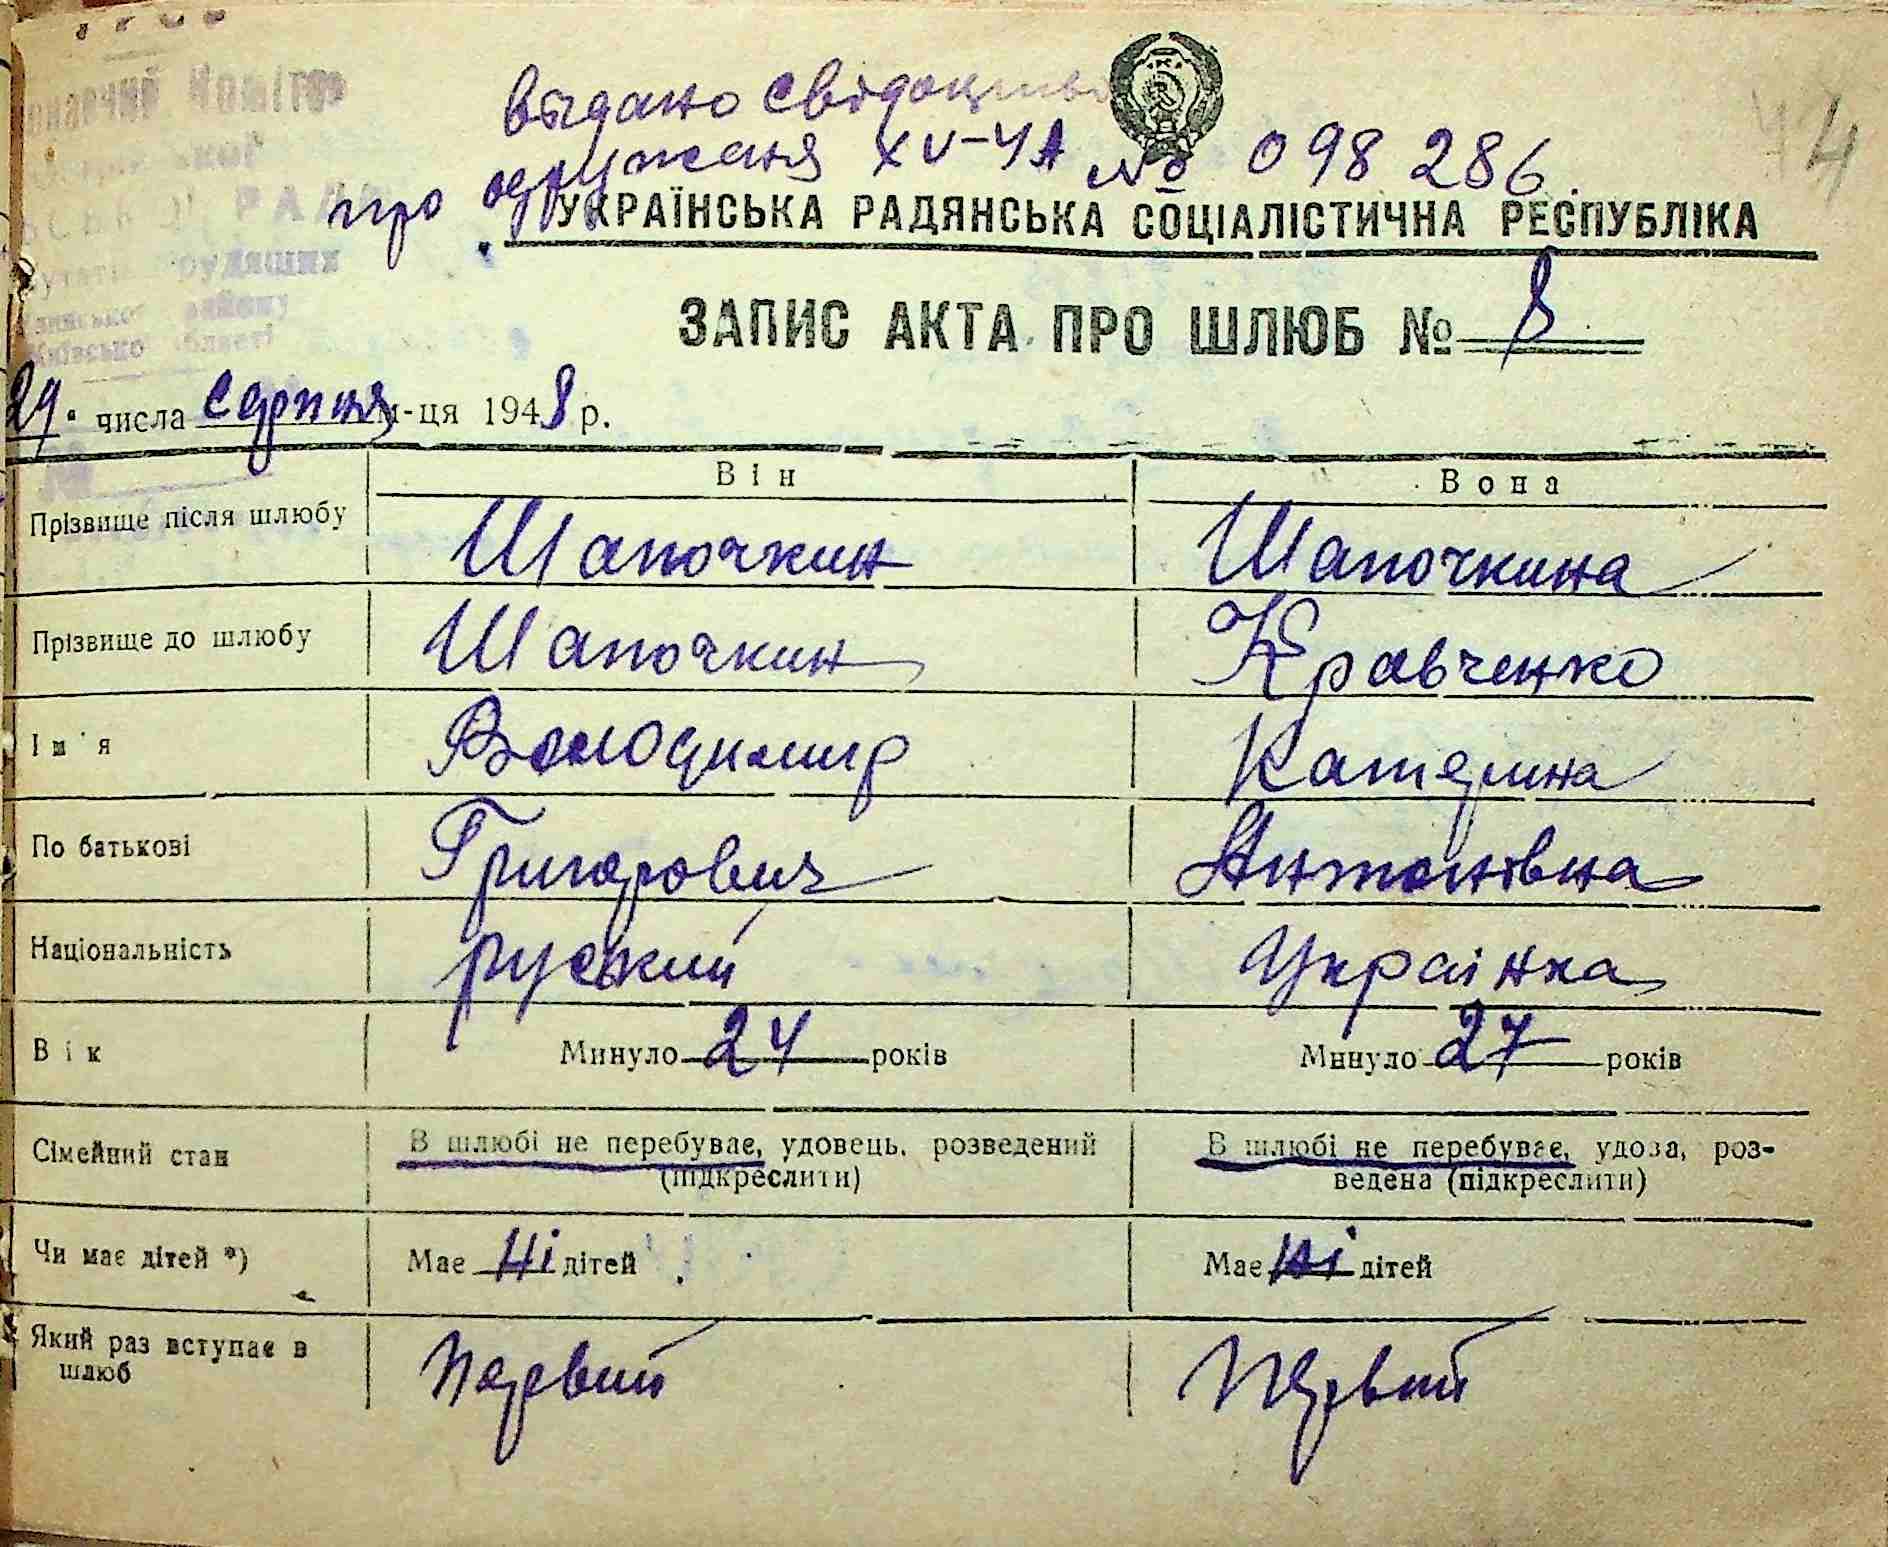 Комітет
РАД
трудящих
району
Київсько області
выдано свідоцтво
про одруженя XV-ЧА № 098 286.
44
УКРАЇНСЬКА РАДЯНСЬКА СОЦІАЛІСТИЧНА РЕСПУБЛІКА
ЗАПИС АКТА ПРО ШЛЮБ № 8
29. числа серпня м-ця 1948 р.
Він Вона
Прізвище після шлюбу Шапочкин Шапочкина
Прізвище до шлюбу Шапочкин Кравченко
Ім'я Володимир Катерина
По батькові Григорович Антонівна
Національність руский Українка
Вік Минуло 24 років Минуло 27 років
Сімейний стан В шлюбі не перебуває, удовець, розведений В шлюбі не перебуває, удова, роз-
(підкреслити) ведена (підкреслити)
Чи має дітей *) Має Ні дітей Має Ні дітей
Який раз вступає в Первий Первий
шлюб